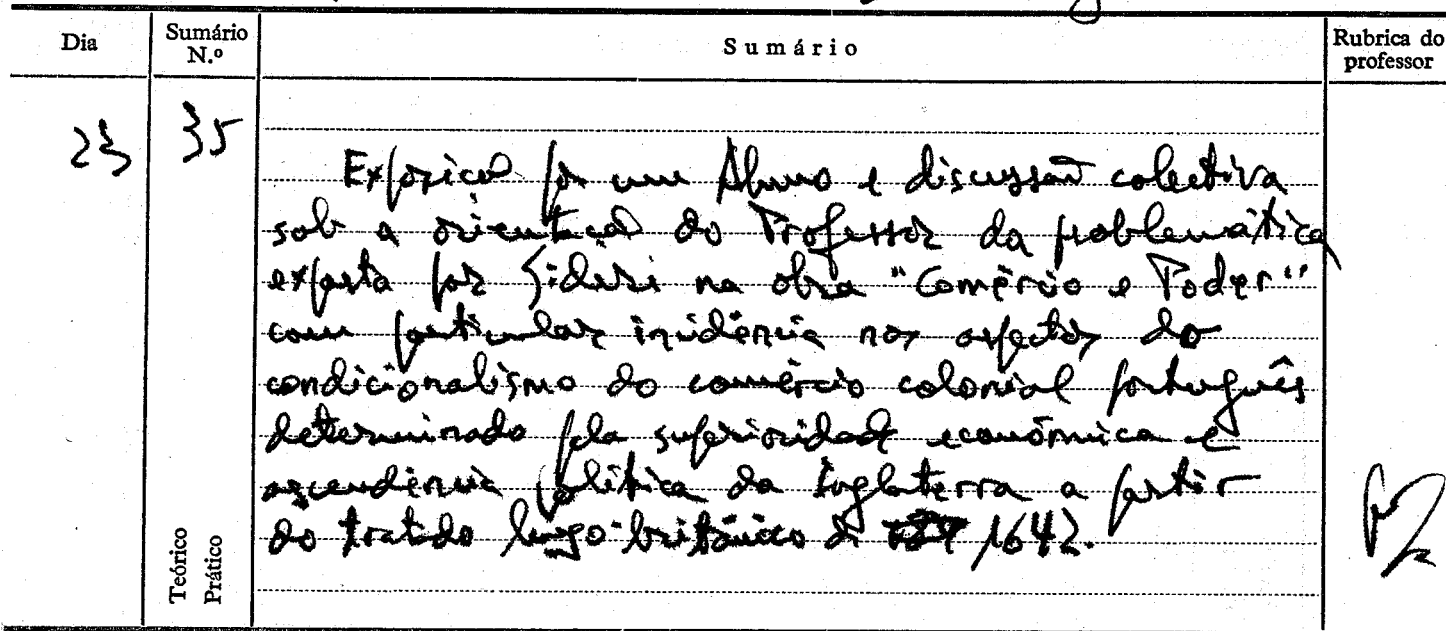 Dia
Sumário
N.º
Sumário
Rubrica do
professor
23
35
Exposição por um Aluno e discussão colectiva
sob a orientação do Professor da problemática
exposta por Sideri na obra "Comércio e Poder"
com particular incidência nos aspectos do
condicionalismo do comércio colonial português
determinado pela superioridade económica e
ascendência política da Inglaterra a partir
do tratado luso-britânico de 1642.
Teórico
Prático